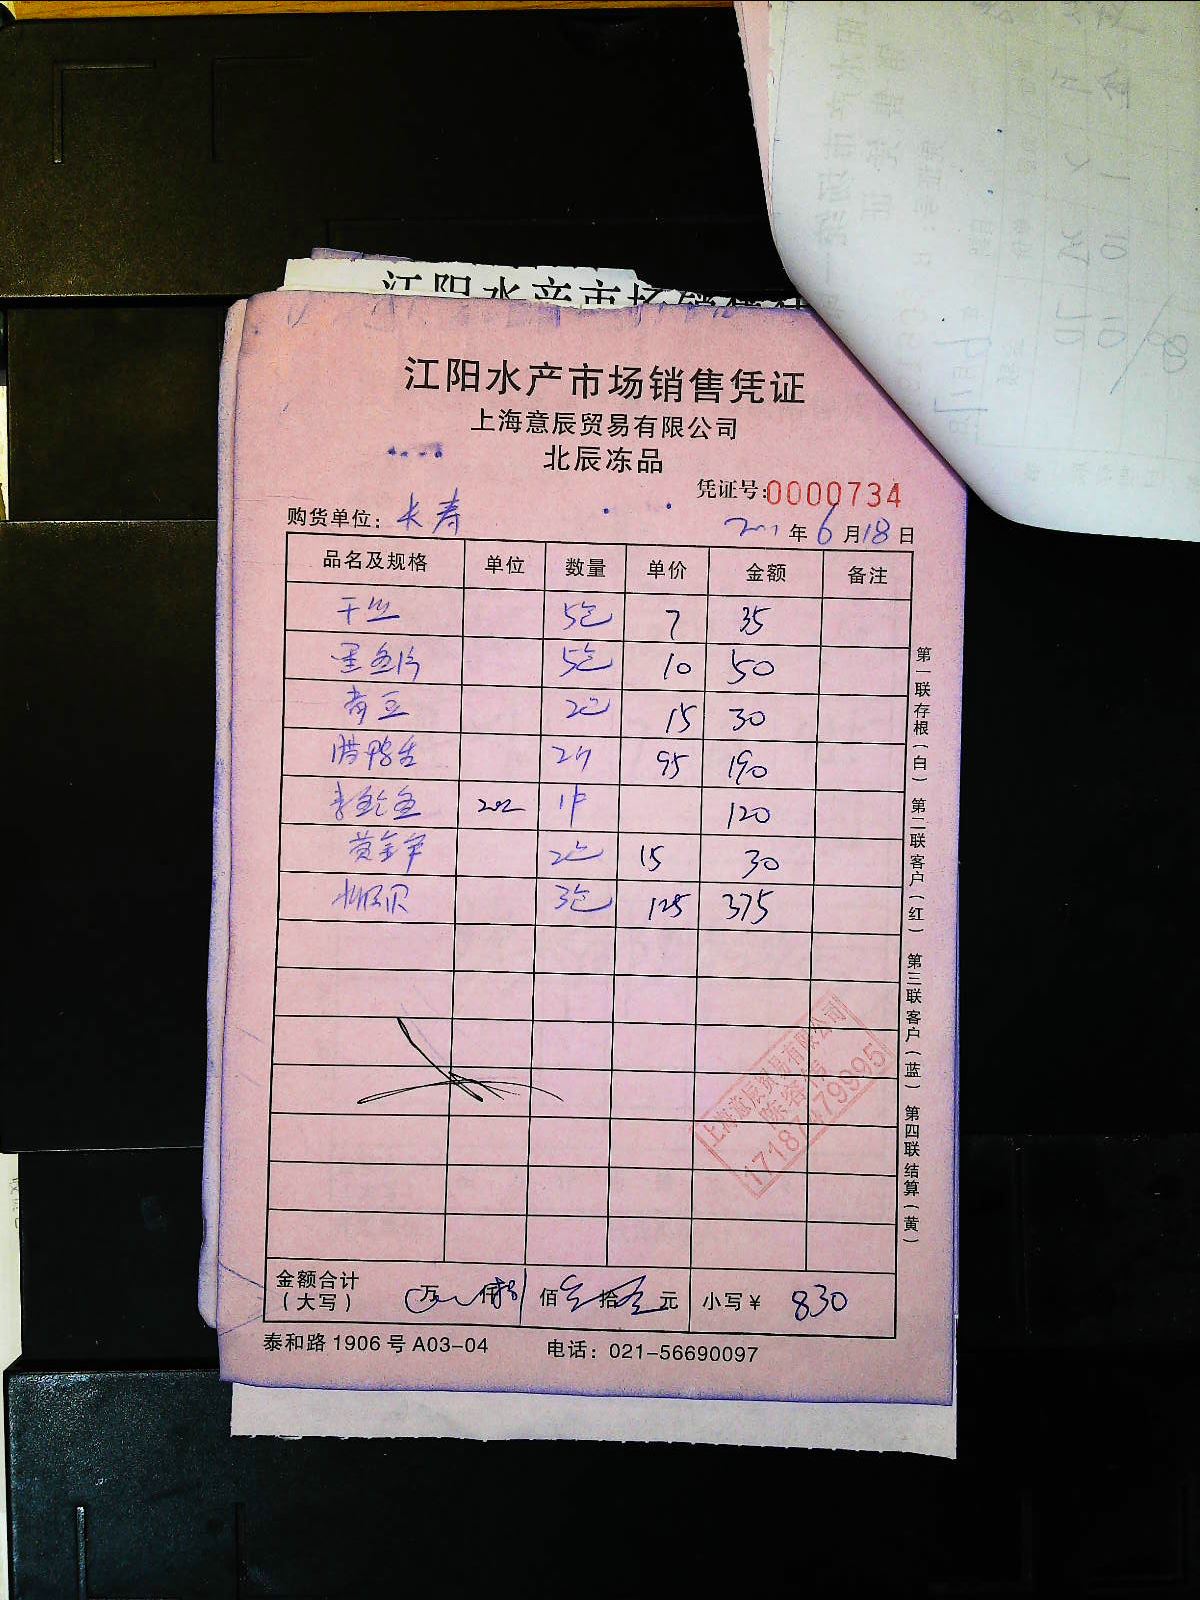 江阳水产市场销售凭证
江阳水产市场销售凭证
上海意辰贸易有限公司
北辰冻品
凭证号:0000734
购货单位: 长寿
年 6 月 18 日
品名及规格 单位 数量 单价 金额 备注
干丝 5包 7 35
墨鱼片 5包 10 50
青豆 2包 15 30
腊鸭舌 2斤 95 190
1件 120
黄金 2包 15 30
贝 3包 125 375
第一联存根(白) 第二联客户(红) 第三联客户(蓝) 第四联结算(黄)
上海意辰贸易有限公司
79995
金额合计
(大写)
万 仟捌佰叁拾 元 小写¥ 830
泰和路 1906 号 A03-04 电话: 021-56690097